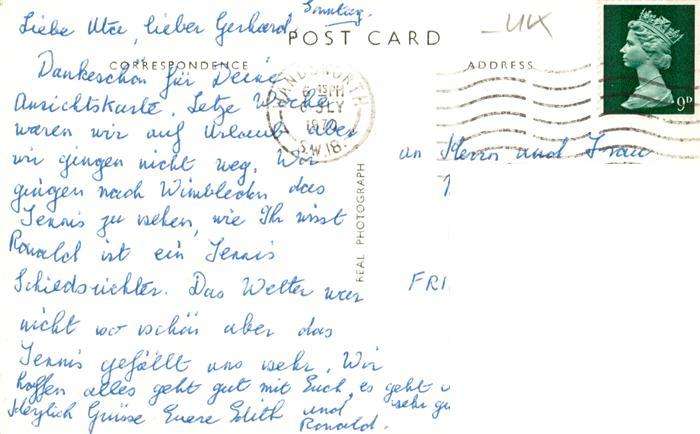 Sonntag.
Liebe Ute, lieber Gerhard
UK
POST CARD
CORRESPONDENCE
ADDRESS
Dankeschön für Deine
Ansichtskarte. Letze Woche
waren wir auf Urlaub aber
wir gingen nicht weg. Wir
gingen nach Wimbledon das
Tennis zu sehen, wie Ihr wisst
Ronald ist ein Tennis
Schiedsrichter. Das Wetter war
nicht so schön aber das
Tennis gefällt uns sehr. Wir
hoffen alles geht gut mit Euch, es geht
sehr
Herzlich Grüsse Euere Edith und
Ronald.
WANDSWORTH
JLY
S.W.18.
REAL PHOTOGRAPH
9D
an Herrn und Frau
FRI